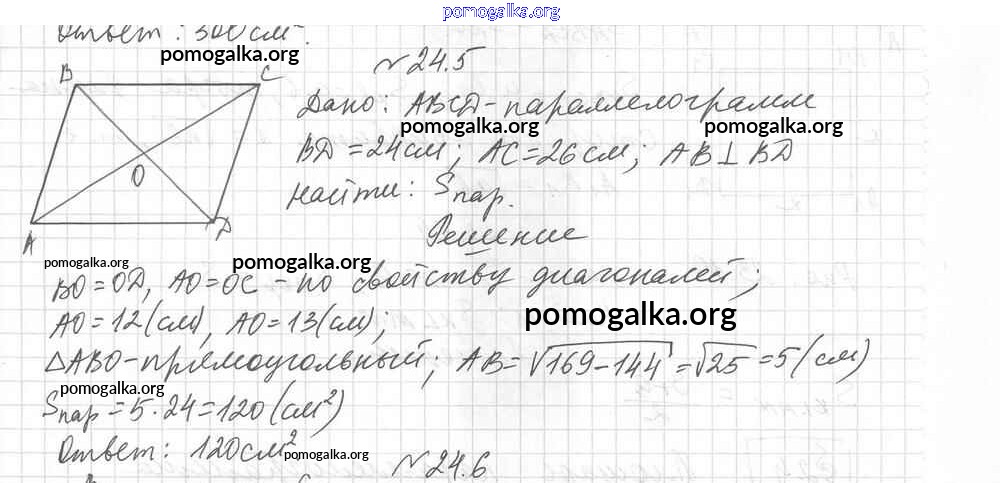 pomogalka.org
Ответ: 300 см².
pomogalka.org
N 24.5
B C
Дано: ABCD - параллелограмм
pomogalka.org pomogalka.org
BD = 24 см; AC = 26 см; AB ⊥ BD
O
Найти: Sпар.
A D
Решение
pomogalka.org pomogalka.org
BO = OD, AO = OC - по свойству диагоналей;
pomogalka.org
AO = 12 (см), AO = 13 (см);
△ABO - прямоугольный; AB = √169-144 = √25 = 5 (см)
pomogalka.org
Sпар = 5 · 24 = 120 (см²)
Ответ: 120 см²
pomogalka.org
N 24.6